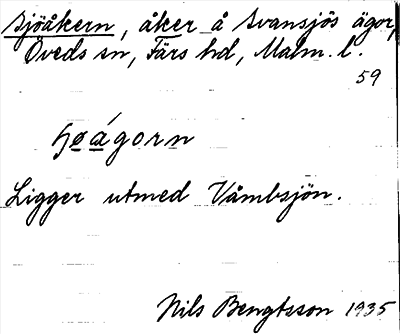 Sjöåkern, åker å Svansjös ägor,
Öveds sn, Färs hd, Malm. l.
59
Ligger utmed Våmbsjön.
Nils Bengtsson 1935